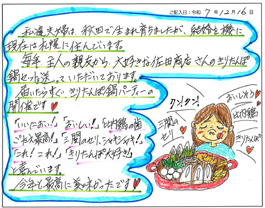 ご記入日：令和 7年12月16日
私達夫婦は、秋田で生まれ育ちましたが、結婚を機に
現在は札幌に住んでいます。
毎年 主人の親友から、大好きな佐田商店さんのきりたんぽ
鍋セットを送っていただいております。
届いたらすぐ、きりたんぽ鍋パーティーの
開催です
「いいにおい!」「おいしい!」「比内鶏の歯
ごたえ最高!」「三関のせり、シャキシャキ!」
「これ!これ!」「きりたんぽ大好き!」
と喜んでいます。
今年も最高に美味かったです
ワンタン!
三関のせり
おいしそう
比内鶏
きりたんぽ